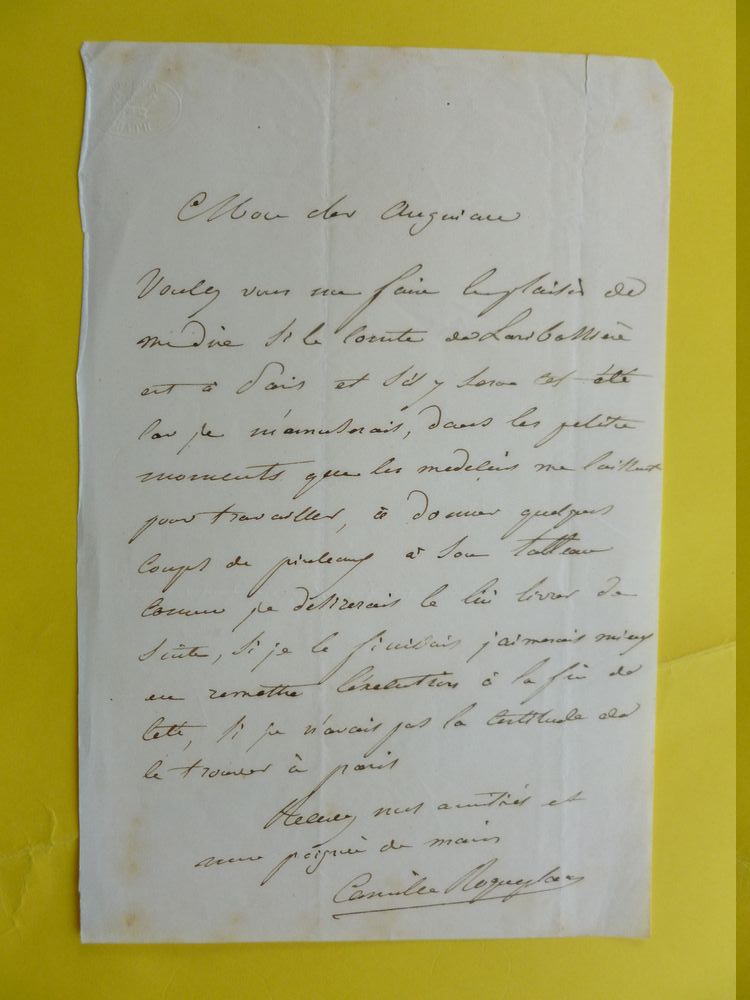 Mon cher Anguiau
Voulez vous me faire le plaisir de
me dire si le Comte de Lariboissière
est à Paris et s'il y sera cet été
Car je m'amuserais, dans les petits
moments que les medecins me laissent
pour travailler, à donner quelques
coups de pinceaux à son tableau
comme je desirerais le lui livrer de
suite, si je le finissais j'aimerais mieux
en remettre l'exécution à la fin de
l'été, si je n'avais pas la certitude de
le trouver à paris
Recevez mes amitiés et
une poignée de main
Camille Roqueplan